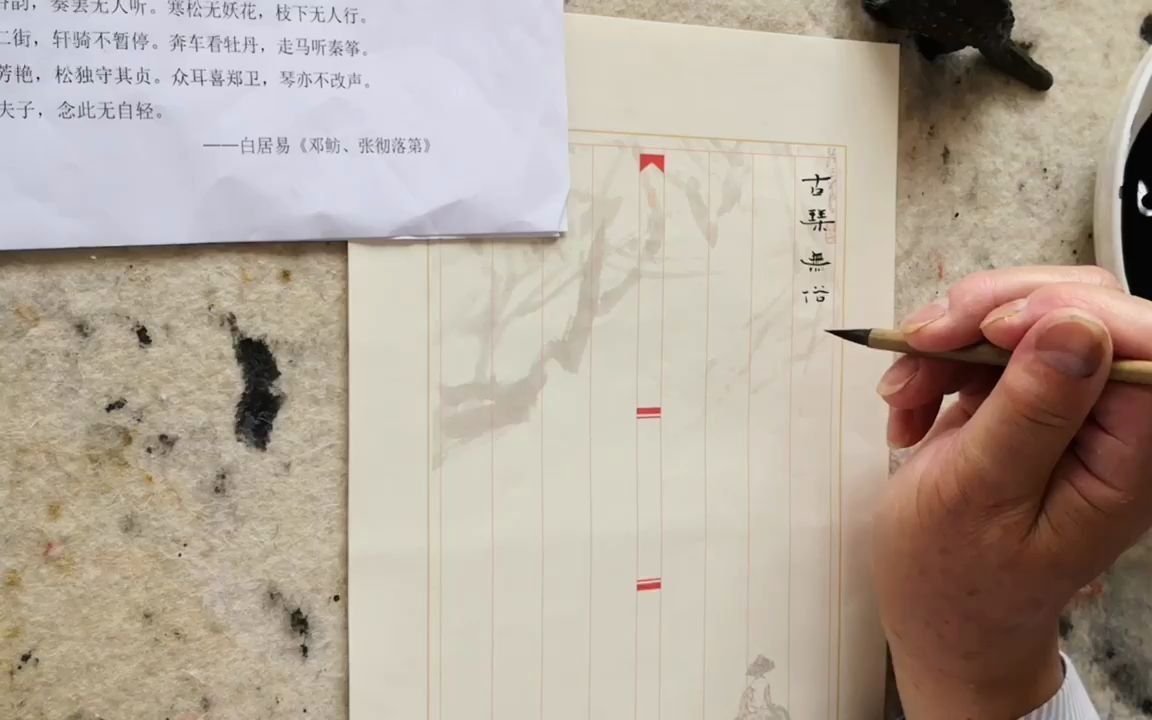 韵，奏罢无人听。寒松无妖花，枝下无人行。
二街，轩骑不暂停。奔车看牡丹，走马听秦筝。
芳艳，松独守其贞。众耳喜郑卫，琴亦不改声。
夫子，念此无自轻。
——白居易《邓鲂、张彻落第》
古琴無俗